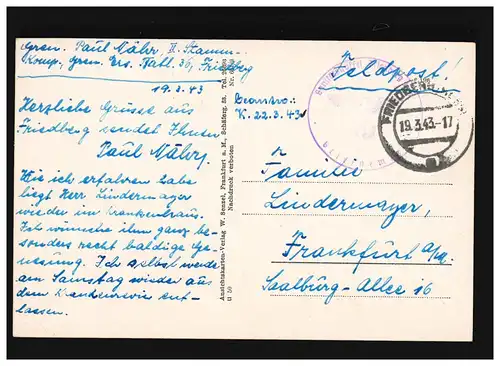 Gren. Paul Nährj, II. Stamm-
Komp. Gren. Ers. Batl. 36, Friedberg
19.3.43
Herzliche Grüsse aus
Friedberg sendet Ihnen
Paul Nährj.
Wie ich erfahren habe
liegt Herr Lindermayer
wieder im Krankenhaus.
Ich wünsche ihm ganz be-
sonders recht baldige Ge-
nesung. Ich selbst werde
am Samstag wieder aus
dem Krankenrevier ent-
lassen.
Ansichtskarten-Verlag W. Senzel, Frankfurt a. M., Schäferg. 23. Tel.
Nachdruck verboten
Feldpost!
Beantw.:
K. 22.3.43
FRIEDBERG
19.3.43-17
Familie
Lindermayer,
Frankfurt a/M.
Saalburg-Allee 16